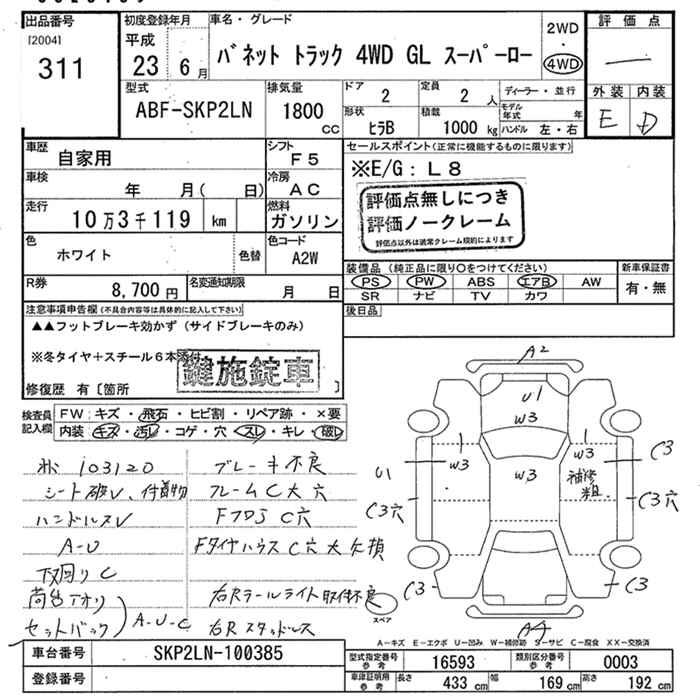 出品番号
[2004]
311
初度登録年月
平成
23 6月
車名・グレード
バネット トラック 4WD GL スーパーロー
2WD
・
4WD
評価点
―
外装 内装
E D
型式
ABF-SKP2LN
排気量
1800
cc
ドア
2
定員
2人
形状
ヒラB
積載
1000 kg
ディーラー・並行
モデル年式 年
ハンドル 左・右
車歴
自家用
シフト
F5
車検
年 月( 日)
冷房
AC
走行
10万3千119 km
燃料
ガソリン
色
ホワイト
色替
色コード
A2W
R券
8,700 円
名変通知期限
月 日
セールスポイント(正常に機能するものに限ります)
※E/G:L8
評価点無しにつき
評価ノークレーム
評価点以外は通常クレーム規約によります
装備品(純正品に限り○をつけてください)
PS PW ABS エアB AW
SR ナビ TV カワ
新車保証書
有・無
後日品
注意事項申告欄(不具合内容等は具体的に記入して下さい)
▲▲フットブレーキ効かず(サイドブレーキのみ)
※冬タイヤ+スチール6本添付
鍵施錠車
修復歴 有〔箇所 〕
検査員記入欄
FW:キズ・飛石・ヒビ割・リペア跡・×要
内装:キズ・汚レ・コゲ・穴・スレ・キレ・破レ
103120
ブレーキ不良
シート破レ、付着物
フレームC大穴
ハンドルスレ
FフロアC穴
A-U
FタイヤハウスC穴大欠損
下回りC
荷台アオリ
右Rテールライト取付不良
セットバック
A-U-C
右Rスタッドレス
A2
U1
W3
W3
W3
W3
U1
補修粗
C3
C3穴
C3穴
C3
C3
スペア
A-キズ E-エクボ U-凹み W-補修跡 S-サビ C-腐食 XX-交換済
車台番号
SKP2LN-100385
登録番号
型式指定番号
参考
16593
類別区分番号
参考
0003
車庫証明用
参考
長さ
433 cm
幅
169 cm
高さ
192 cm